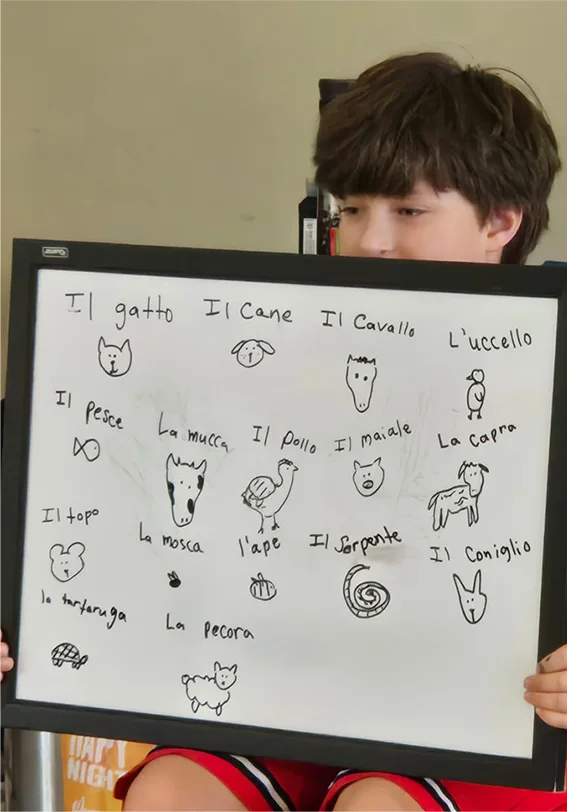 Il gatto Il Cane Il Cavallo L'uccello
Il pesce La mucca Il pollo Il maiale La capra
Il topo La mosca l'ape Il Serpente Il Coniglio
la tartaruga La pecora
HAPPY
NIGHT